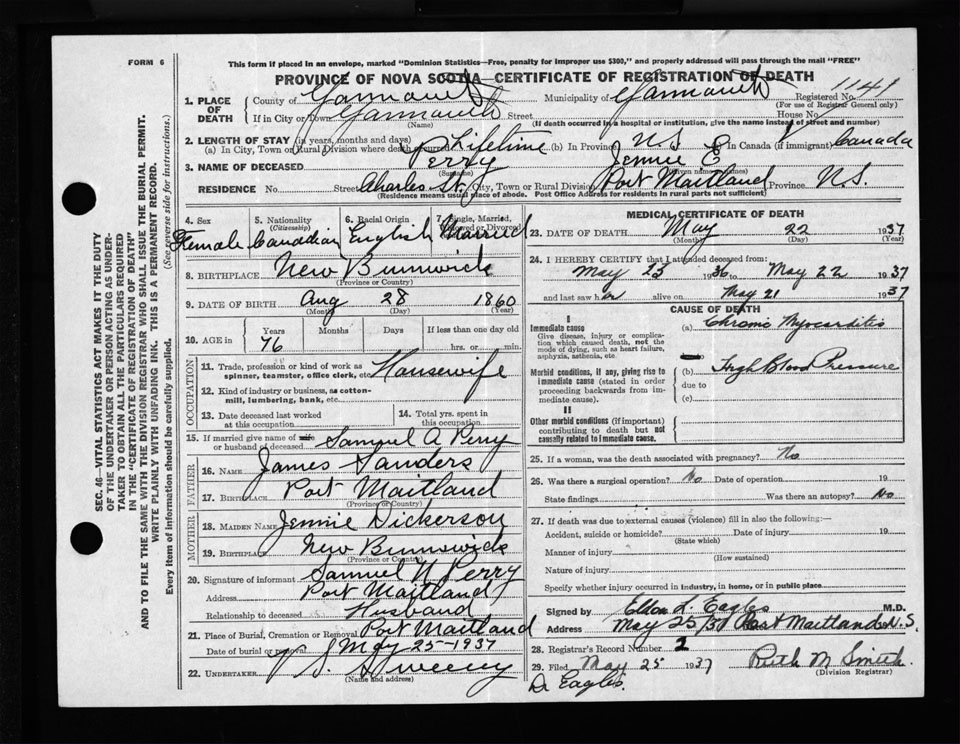 FORM 6
This form if placed in an envelope, marked "Dominion Statistics—Free, penalty for improper use $300," and properly addressed will pass through the mail "FREE"
PROVINCE OF NOVA SCOTIA—CERTIFICATE OF REGISTRATION OF DEATH
1. PLACE OF DEATH
County of Yarmouth Municipality of Yarmouth Registered No. 1141
(For use of Registrar General only)
If in City or Town Yarmouth Street House No.
(Name) (If death occurred in a hospital or institution, give the name instead of street and number)
2. LENGTH OF STAY (in years, months and days)
(a) In City, Town or Rural Division where death Lifetime (b) In Province N S In Canada (if immigrant) Canada
3. NAME OF DECEASED Perry Jennie E
(Surname) (Given name or names)
RESIDENCE No. Street Charles St. City, Town or Rural Division Port Maitland Province N.S.
(Residence means usual place of abode. Post Office Address for residents in rural parts not sufficient)
SEC. 46—VITAL STATISTICS ACT MAKES IT THE DUTY
OF THE UNDERTAKER OR PERSON ACTING AS UNDER-
TAKER TO OBTAIN ALL THE PARTICULARS REQUIRED
IN THE "CERTIFICATE OF REGISTRATION OF DEATH"
AND TO FILE THE SAME WITH THE DIVISION REGISTRAR WHO SHALL ISSUE THE BURIAL PERMIT.
WRITE PLAINLY WITH UNFADING INK. THIS IS A PERMANENT RECORD.
Every item of information should be carefully supplied. (See reverse side for instructions.)
4. Sex 5. Nationality 6. Racial Origin 7. Single, Married,
(Citizenship) Widowed or Divorced
Female Canadian English Married
8. BIRTHPLACE New Brunswick
(Province or Country)
9. DATE OF BIRTH Aug 28 1860
(Month) (Day) (Year)
10. AGE in Years Months Days If less than one day old
76 hrs. or min.
OCCUPATION
11. Trade, profession or kind of work as
spinner, teamster, office clerk, etc. Housewife
12. Kind of industry or business, as cotton-
mill, lumbering, bank, etc.
13. Date deceased last worked
at this occupation
14. Total yrs. spent in
this occupation
15. If married give name of wife
or husband of deceased Samuel A Perry
FATHER
16. NAME James Sanders
17. BIRTHPLACE Port Maitland
(Province or Country)
MOTHER
18. MAIDEN NAME Jennie Dickerson
19. BIRTHPLACE New Brunswick
(Province or Country)
20. Signature of informant Samuel N Perry
Address Port Maitland
Relationship to deceased Husband
21. Place of Burial, Cremation or Removal Port Maitland
Date of burial or removal May 25-1937
22. UNDERTAKER Sweeny
MEDICAL CERTIFICATE OF DEATH
23. DATE OF DEATH May 22 1937
(Month) (Day) (Year)
24. I HEREBY CERTIFY that I attended deceased from:
May 25 1936 to May 22 1937
and last saw her alive on May 21 1937
CAUSE OF DEATH
I
Immediate cause
Give disease, injury or complica-
tion which caused death, not the
mode of dying, such as heart failure,
asphyxia, asthenia, etc.
(a) Chronic Myocarditis
Morbid conditions, if any, giving rise to
immediate cause (stated in order
proceeding backwards from im-
mediate cause).
(b) High Blood Pressure
due to
(c)
II
Other morbid conditions (if important)
contributing to death but not
causally related to immediate cause.
25. If a woman, was the death associated with pregnancy? No
26. Was there a surgical operation? No Date of operation 19
State findings Was there an autopsy? No
27. If death was due to external causes (violence) fill in also the following:—
Accident, suicide or homicide? Date of injury 19
(State which)
Manner of injury
(How sustained)
Nature of injury
Specify whether injury occurred in industry, in home, or in public place
Signed by Eldon L. Eagles M.D.
Address May 25/37 Port Maitland N.S.
28. Registrar's Record Number 2
29. Filed May 25 1937 Ruth M Smith
(Division Registrar)
Dr Eagles.